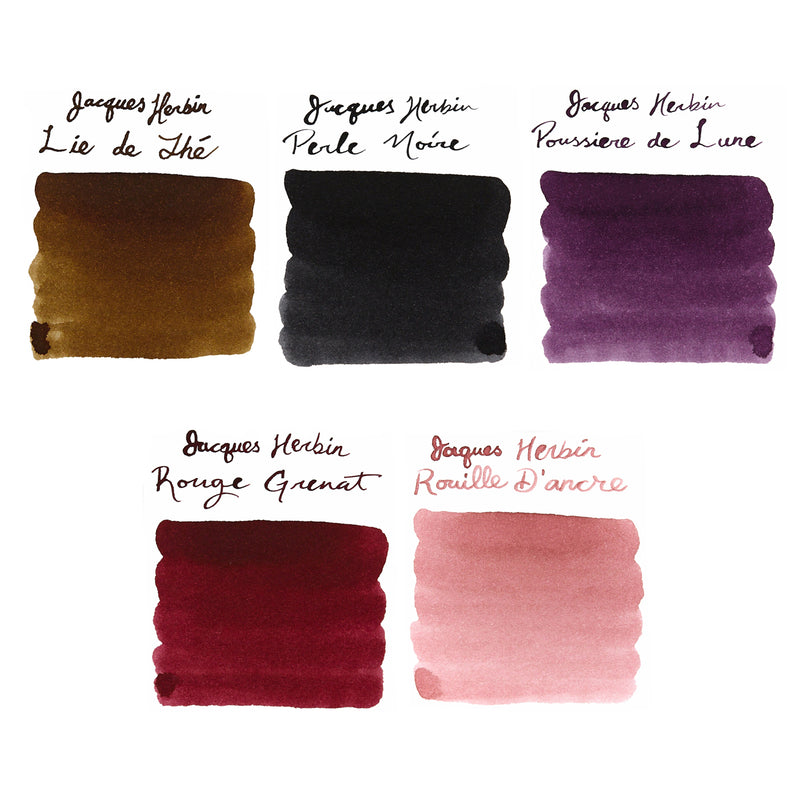 Jacques Herbin
Lie de Thé
Jacques Herbin
Perle Noire
Jacques Herbin
Poussiere de Lune
Jacques Herbin
Rouge Grenat
Jacques Herbin
Rouille D'ancre